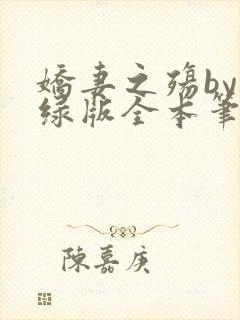 嬌妻之殤by
綠版全本筆
陳嘉庚